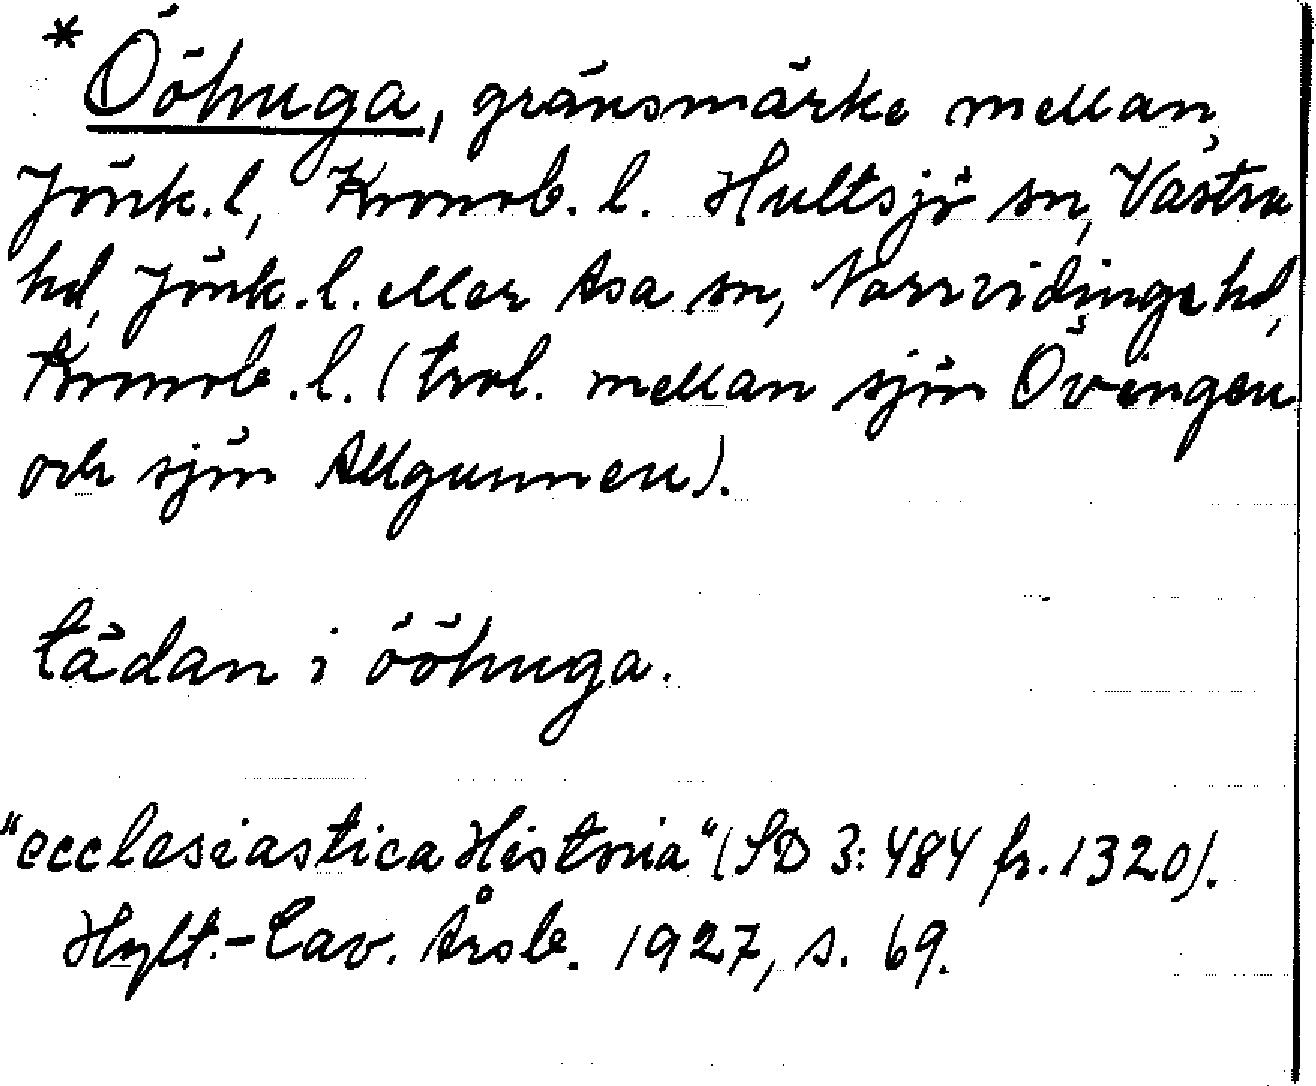 * Ööhuga, gränsmärke mellan
Jönk.l, Kronob. l. Hultsjö sn, Västra
hd, Jönk.l. eller Asa sn, Norrvidinge hd,
Kronob.l. (trol. mellan sjön Övingen
och sjön Allgunnen).
tådan i ööhuga.
"ecclesiastica Historia" (SD 3: 484 fr. 1320).
Hylt.-Cav. Årsb. 1927, s. 69.